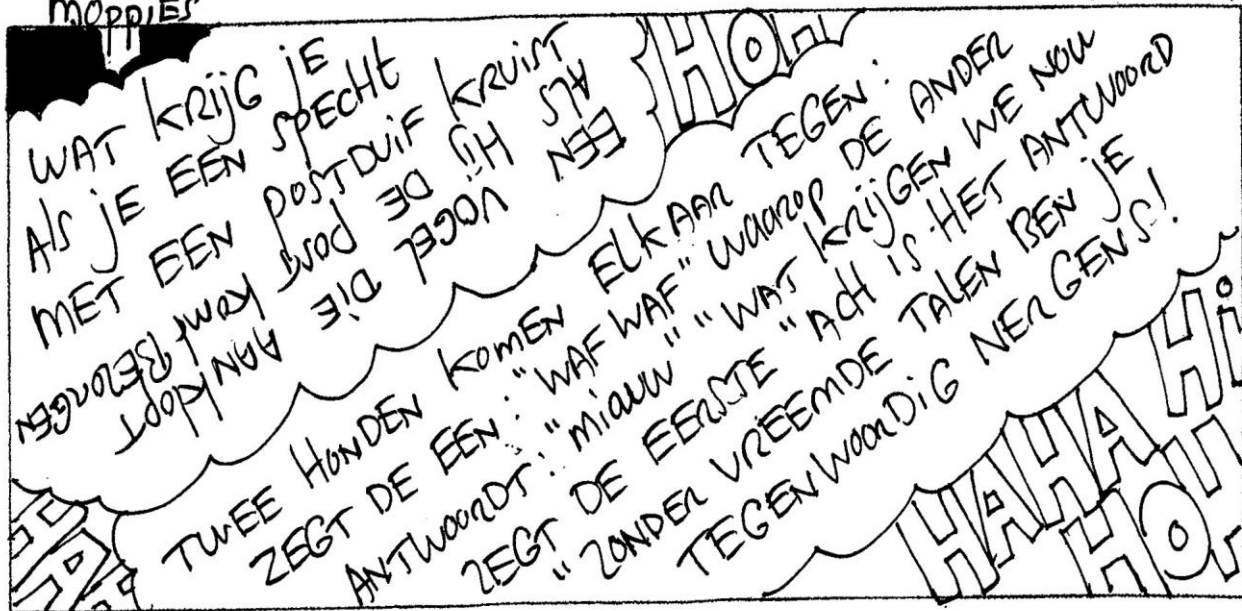 MOPPIES
WAT KRIJG JE
ALS JE EEN SPECHT
MET EEN POSTDUIF KRUIST
EEN VOGEL DIE
AANKLOPT
ALS HIJ DE POST KOMT BEZORGEN
HOH
TWEE HONDEN KOMEN ELKAAR TEGEN:
ZEGT DE EEN: "WAF WAF" WAAROP DE ANDER
ANTWOORDT: "MIAUW" "WAT KRIJGEN WE NOU
ZEGT DE EERSTE "ACH IS HET ANTWOORD
"ZONDER VREEMDE TALEN BEN JE
TEGENWOORDIG NERGENS!
HAHA Hi
HOH